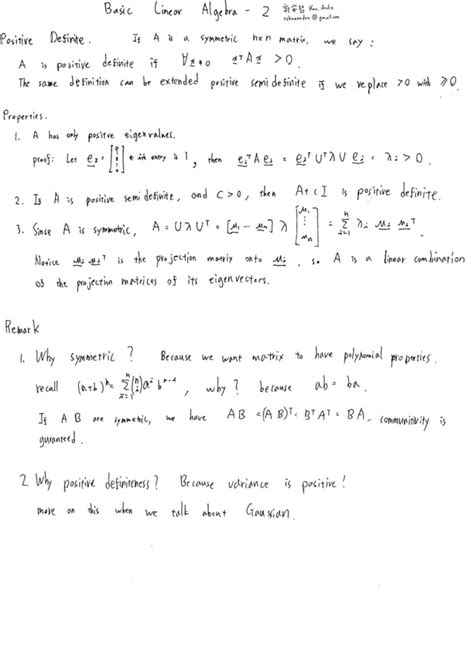 Basic Linear Algebra - 2
Positive Definite. If A is a symmetric n×n matrix, we say:
A is positive definite if ∀x≠0 xᵀAx > 0.
The same definition can be extended positive semidefinite if we replace >0 with ≥0.
Properties.
1. A has only positive eigenvalues.
proof: Let eᵢ = [0 ⋮ 1 ⋮ 0] ← ith entry is 1, then eᵢᵀAeᵢ = eᵢᵀUᵀλUeᵢ = λᵢ > 0.
2. If A is positive semidefinite, and C > 0, then A + cI is positive definite.
3. Since A is symmetric, A = UλUᵀ = [u₁ ... uₙ] λ [u₁ ⋮ uₙ]ᵀ = Σᵢ₌₁ⁿ λᵢ uᵢ uᵢᵀ.
Notice uᵢuᵢᵀ is the projection matrix onto uᵢ, so A is a linear combination
of the projection matrices of its eigenvectors.
Remark
1. Why symmetric? Because we want matrix to have polynomial properties.
recall (a+b)ⁿ = Σᵢ₌₁ⁿ (n i) aⁱ bⁿ⁻ⁱ, why? because ab = ba.
If A B are symmetric, we have AB = (AB)ᵀ = BᵀAᵀ = BA, communitivity is
guranteed.
2. Why positive definiteness? Because variance is positive!
more on this when we talk about Gaussian.